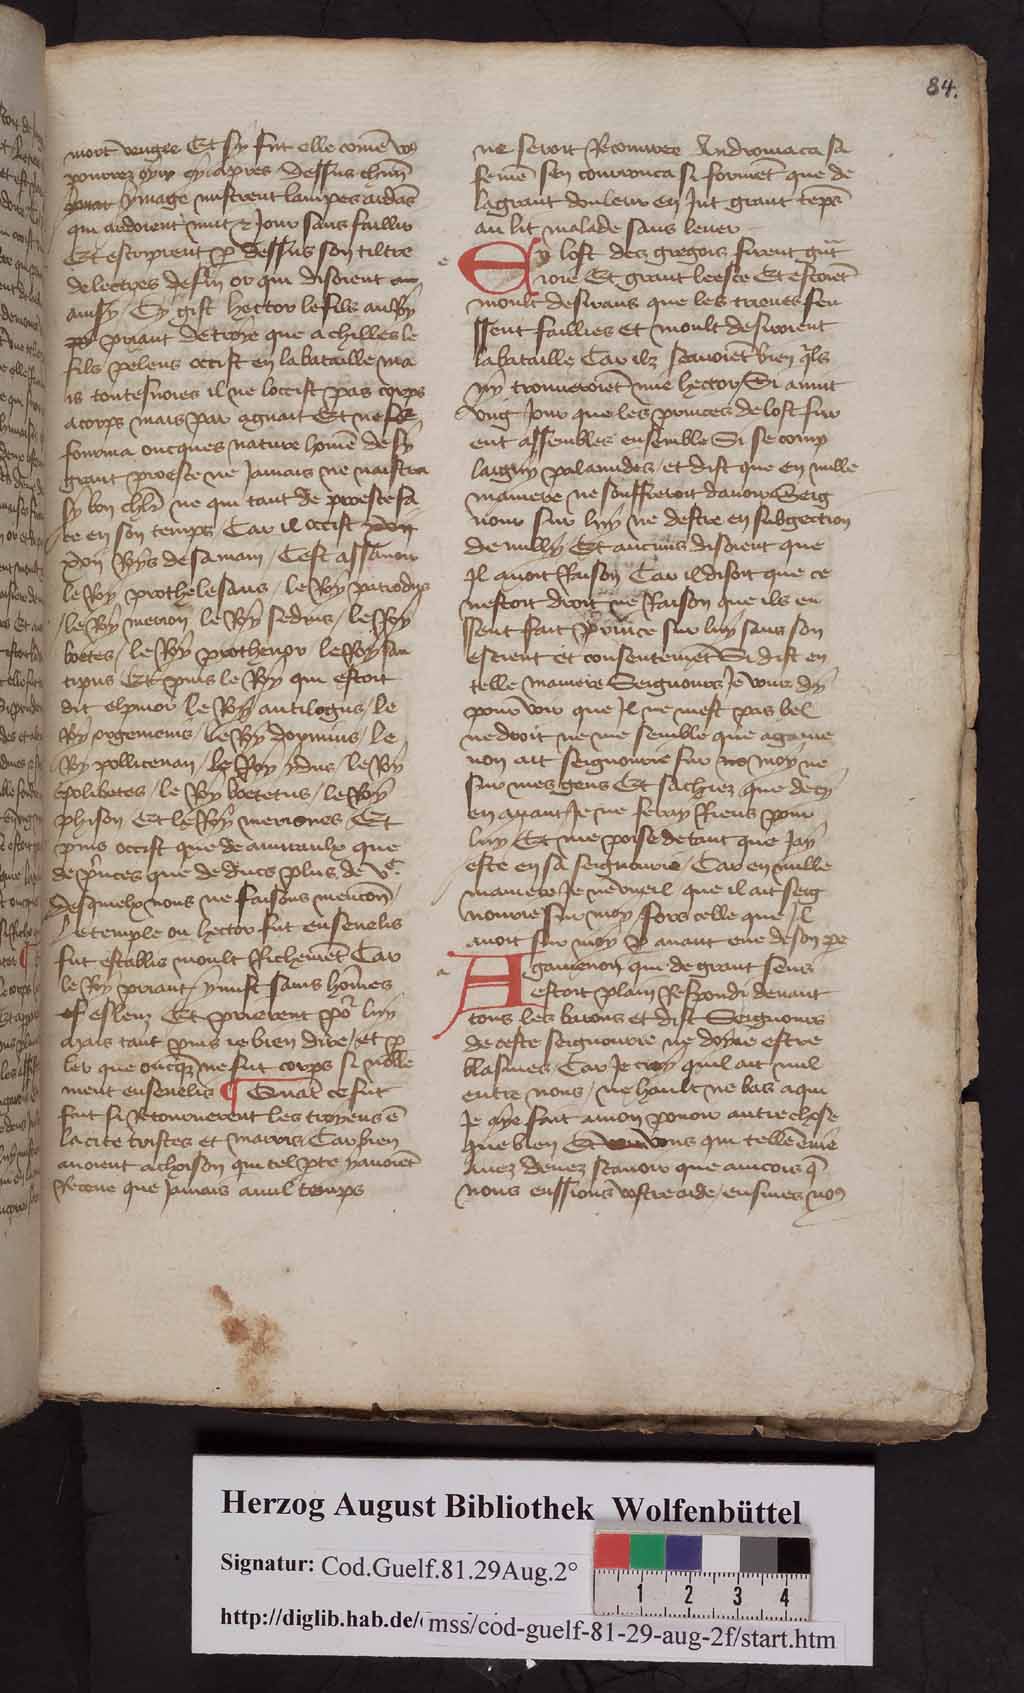 84.
mort vengee Et sy fut elle comē vo9
pourrez oyr cy apres dessus chūn
ymage mistrent lampes ardās
qui ardoient nuit et Jour sans faillir
Et escriprent p dessus son tiltre
de lectres de fin or qui disoient
ainsy Cy gist hector le filz au Roy
priant de troye que achilles le
filz peleus occist en la bataille ma
is toutesuoies il ne loccist pas corps
a corps mais par aguait Et ne
fourma oncques nature homē de sy
grant proesce ne Jamais ne naistra
sy bon chlr̄ ne qui tant de proesce fa
ce en son temps Car il occist
xviij Roys de sa main / Cest assauoir
le Roy prothelesaus / le Roy patroclus
/ le Roy merion le Roy sedius / le Roy
boetes / le Roy prothenor le Roy
tipus Et puis le Roy qui estoit
dit elpinor le Roy antilogus / le
Roy orgemenis / le Roy dopmius / le
Roy pollicenan / le Roy ydus / le Roy
epolibetes / le Roy boetetus / le Roy
phison Et le Roy meriones Et
puis occist que de amiraulx que
de p̄nces que de ducs plus de v.c
desquelx nous ne faisons mencōn
Le temple ou hector fut enseuelis
fut establis moult Richemēt Car
le Roy priant y mist sains hōmes
esleuz Et prierent por luy
Mais tant puis ie bien dire / et p
ler que oncq̄s ne fut corps si noble
ment enseuelis ¶ Quāt ce fut
fait si Retournerent les troyens ē
la cite tristes et marris / Car bien
auoient achoison qui tel pte yauoiēt
Receue que Jamais a nul temps
ne seroit Recouuree Andromaca sa
femē sen courrouca si formēt que de
la grant douleur en Jut grant tēps
au lit malade sans leuer
e
En lost des gregois firent grāt
ioie Et grant leesce Et estoiēt
moult desirans que les trieues feu
ssent faillies et moult desiroient
la bataille Car ilz scauoiēt bien q̄ls
ny trouueroiēt mie hector / Si auint
vng Jour que les princes de lost fur
ent assemblez ensemble Si se comp
laigny palamides / et dist que en nulle
maniere ne souffreroit dauoir Seig
nour sur luy ne destre en subgection
de nully Et aucuns disoient que
Il auoit Raison Car il disoit que ce
nestoit droit ne Raison que ils eu
ssent fait prince sur luy sans son
escient et consentemēt Si dist en
telle maniere Seignours Je vous dy
pour voir que Il ne mest pas bel
ne droit ne me semble que agame
non ait seignourie sur moy ne
sur mes gens Et sachiez que de cy
en auant Je ne feray Riens pour
luy Et me poise de tant que Jay
este en sa seignourie / Car en nulle
maniere Je ne vueil que il ait seig
nourie sur moy fors celle que Il
auoit sur moy auant de son pe
a
Agamenon qui de grant sens
estoit plain Respondi deuant
tous les barons et dist Seignours
de ceste seignourie ne doy ie estre
blasmez Car Je croy quil ait nul
entre nous / ne hault ne bas a qui
Je aye fait a mon pouoir autre chose
que bien Et vous qui telle ēuie
Auez deuez scauoir que aincois q̄
nous eussions vostre aide / eusmes no9
Herzog August Bibliothek Wolfenbüttel
Signatur: Cod.Guelf.81.29Aug.2°
1 2 3 4
http://diglib.hab.de/ mss/cod-guelf-81-29-aug-2f/start.htm